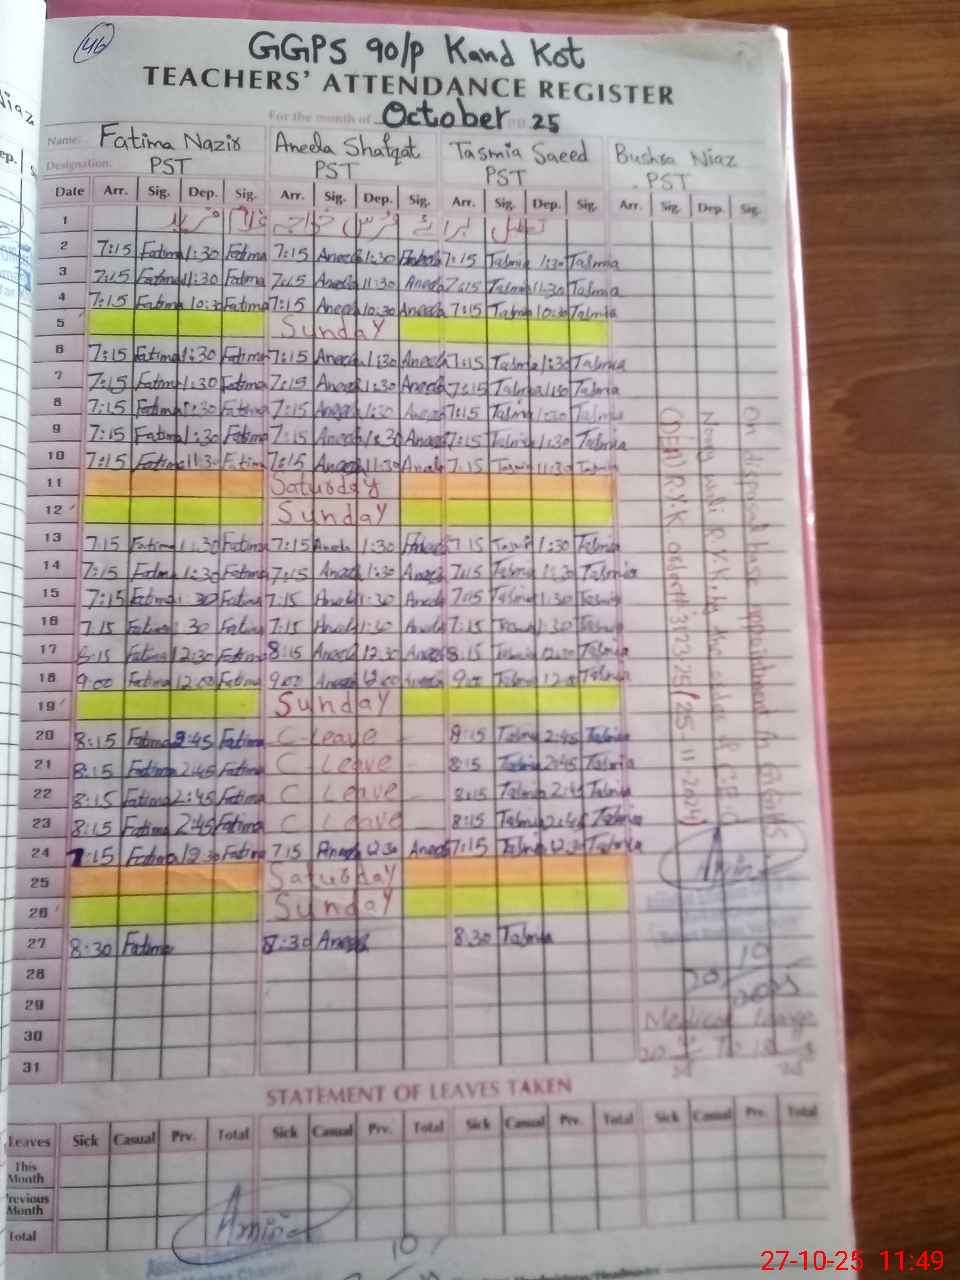 46
GGPS 90/p Kand Kot
TEACHERS' ATTENDANCE REGISTER
For the month of October 25
Name: Fatima Nazir Aneela Shafqat Tasmia Saeed Bushra Niaz
Designation: PST PST PST PST
Date Arr. Sig. Dep. Sig. Arr. Sig. Dep. Sig. Arr. Sig. Dep. Sig. Arr. Sig. Dep. Sig.
1
2 7:15 Fatima 1:30 Fatima 7:15 Aneela 1:30 Aneela 7:15 Tasmia 1:30 Tasmia
3 7:15 Fatima 11:30 Fatima 7:15 Aneela 11:30 Aneela 7:15 Tasmia 11:30 Tasmia
4 7:15 Fatima 10:30 Fatima 7:15 Aneela 10:30 Aneela 7:15 Tasmia 10:30 Tasmia
5 Sunday
6 7:15 Fatima 1:30 Fatima 7:15 Aneela 1:30 Aneela 7:15 Tasmia 1:30 Tasmia
7 7:15 Fatima 1:30 Fatima 7:15 Aneela 1:30 Aneela 7:15 Tasmia 1:30 Tasmia
8 7:15 Fatima 1:30 Fatima 7:15 Aneela 1:30 Aneela 7:15 Tasmia 1:30 Tasmia
9 7:15 Fatima 1:30 Fatima 7:15 Aneela 1:30 Aneela 7:15 Tasmia 1:30 Tasmia
10 7:15 Fatima 11:30 Fatima 7:15 Aneela 11:30 Aneela 7:15 Tasmia 11:30 Tasmia
11 Saturday
12 Sunday
13 7:15 Fatima 1:30 Fatima 7:15 Aneela 1:30 Aneela 7:15 Tasmia 1:30 Tasmia
14 7:15 Fatima 1:30 Fatima 7:15 Aneela 1:30 Aneela 7:15 Tasmia 1:30 Tasmia
15 7:15 Fatima 1:30 Fatima 7:15 Aneela 1:30 Aneela 7:15 Tasmia 1:30 Tasmia
16 7:15 Fatima 1:30 Fatima 7:15 Aneela 1:30 Aneela 7:15 Tasmia 1:30 Tasmia
17 8:15 Fatima 12:30 Fatima 8:15 Aneela 12:30 Aneela 8:15 Tasmia 12:30 Tasmia
18 9:00 Fatima 12:00 Fatima 9:00 Aneela 12:00 Aneela 9:00 Tasmia 12:00 Tasmia
19 Sunday
20 8:15 Fatima 2:45 Fatima C Leave 8:15 Tasmia 2:45 Tasmia
21 8:15 Fatima 2:45 Fatima C Leave 8:15 Tasmia 2:45 Tasmia
22 8:15 Fatima 2:45 Fatima C Leave 8:15 Tasmia 2:45 Tasmia
23 8:15 Fatima 2:45 Fatima C Leave 8:15 Tasmia 2:45 Tasmia
24 7:15 Fatima 12:30 Fatima 7:15 Aneela 12:30 Aneela 7:15 Tasmia 12:30 Tasmia
25 Saturday
26 Sunday
27 8:30 Fatima 8:30 Aneela 8:30 Tasmia
28
29
30
31
On disposal base appointment in
R.Y.K. by the order of C.E.O
(DEA) R.Y.K. order# 3223-25/25-11-2024)
Amina
10
2025
Medical Leave
STATEMENT OF LEAVES TAKEN
Leaves Sick Casual Prv. Total Sick Casual Prv. Total Sick Casual Prv. Total Sick Casual Prv. Total
This Month
Previous Month
Total
Amina
10
27-10-25 11:49